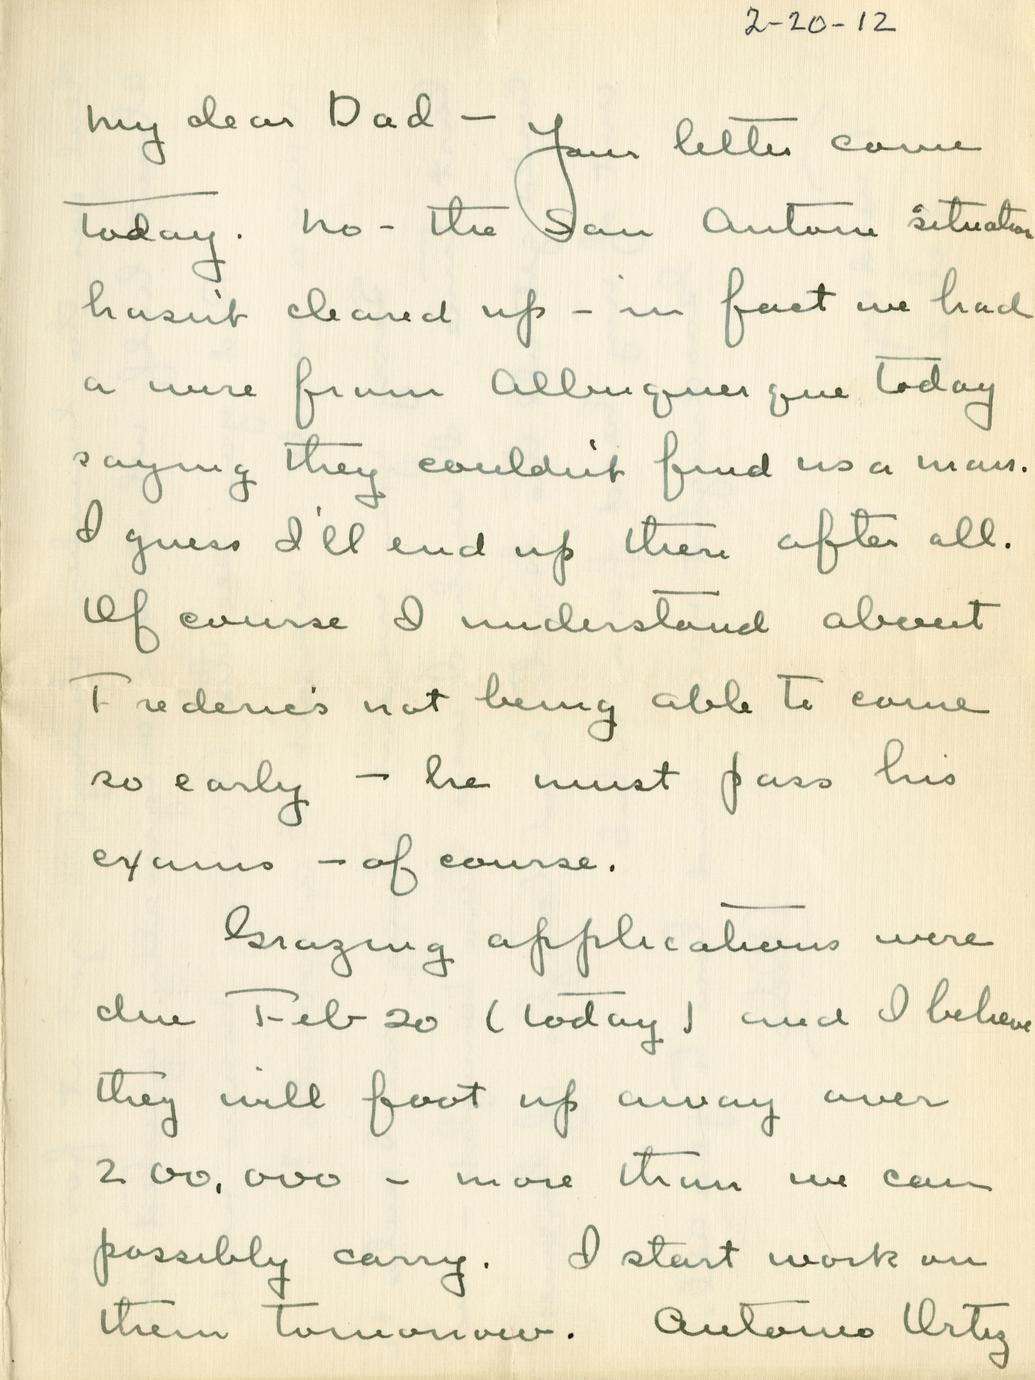 2-20-12
My dear Dad - Your letter came
today. No - the San Antone situation
hasn't cleared up - in fact we had
a wire from Albuquerque today
saying they couldn't find us a man.
I guess I'll end up there after all.
Of course I understand about
Frederic's not being able to come
so early - he must pass his
exams - of course.
Grazing applications were
due Feb 20 (today) and I believe
they will foot up away over
200,000 - more than we can
possibly carry. I start work on
them tomorrow. Antonio Ortiz